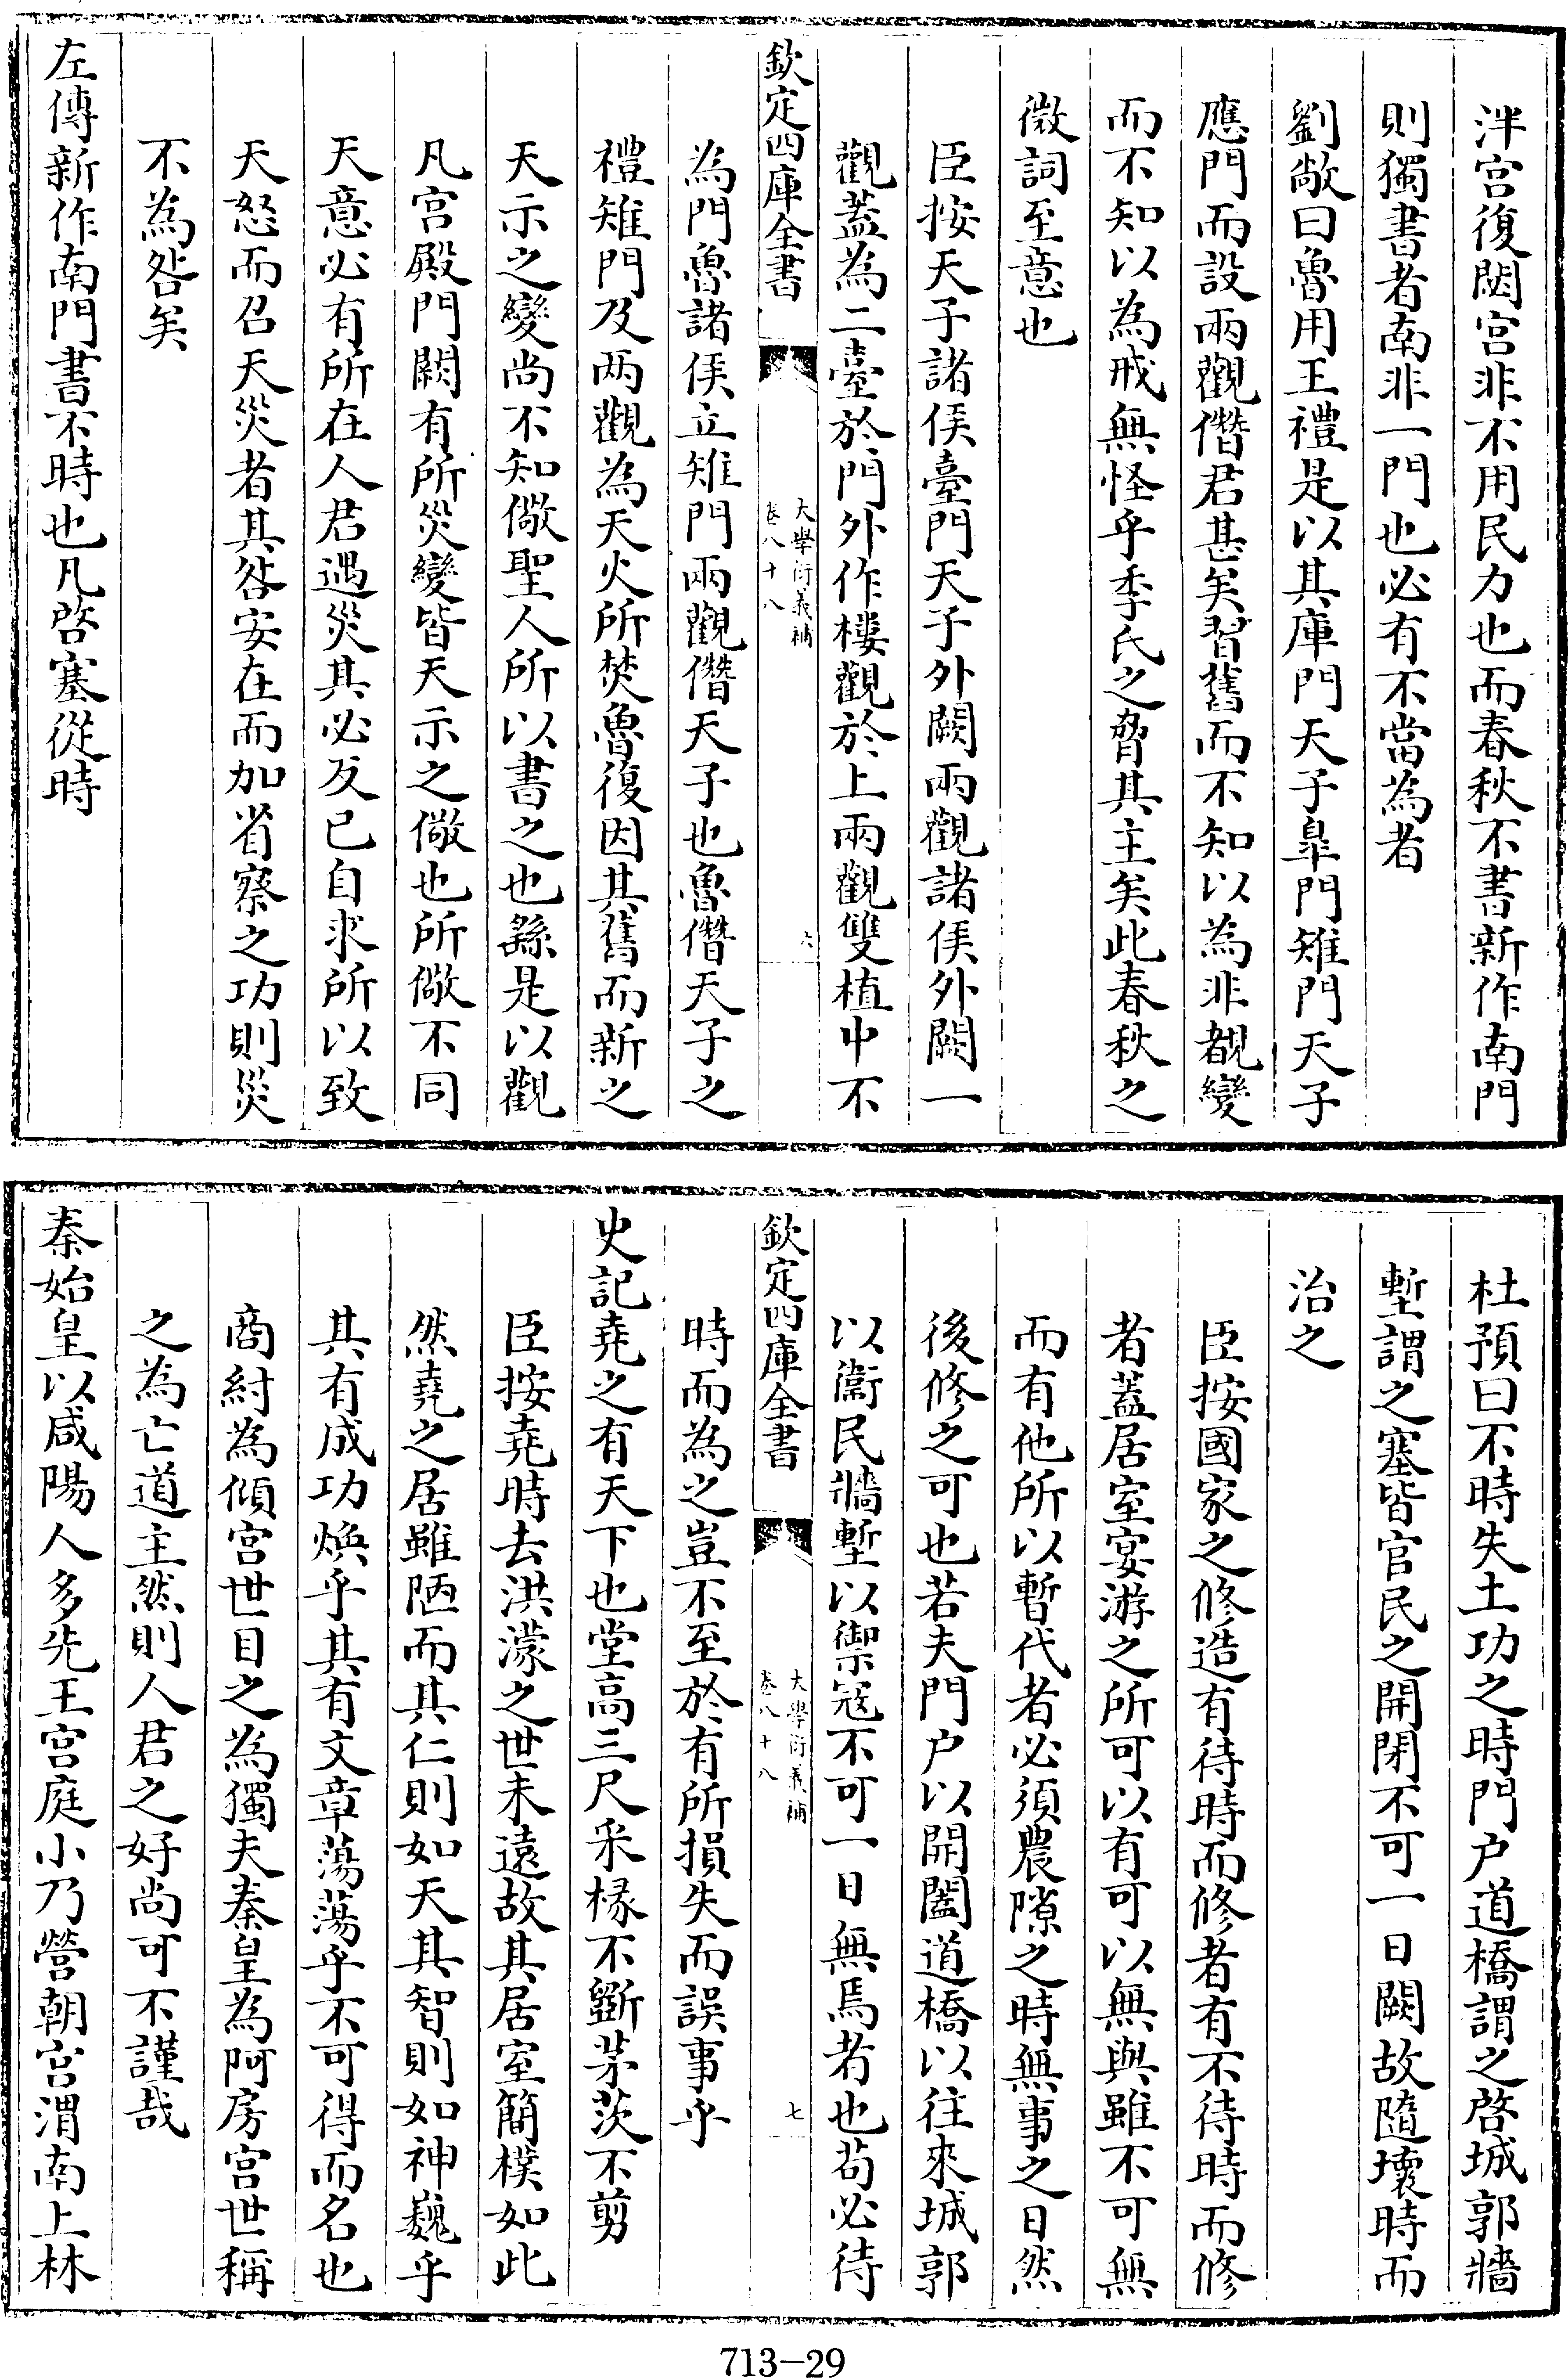 泮宫復閟宫非不用民力也而春秋不書新作南門
則獨書者南非一門也必有不當為者
劉敞曰魯用王禮是以其庫門天子臯門雉門天子
應門而設兩觀僭君甚矣習舊而不知以為非覩變
而不知以為戒無怪乎季氏之脅其主矣此春秋之
微詞至意也
臣按天子諸侯臺門天子外闕兩觀諸侯外闕一
觀蓋為二臺於門外作樓觀於上兩觀雙植中不
欽定四庫全書
大學衍義補
卷八十八
六
為門魯諸侯立雉門兩觀僭天子也魯僭天子之
禮雉門及兩觀為天火所焚魯復因其舊而新之
天示之變尚不知儆聖人所以書之也繇是以觀
凡宫殿門闕有所災變皆天示之儆也所儆不同
天意必有所在人君遇災其必反已自求所以致
天怒而召天災者其咎安在而加省察之功則災
不為咎矣
左傳新作南門書不時也凡啓塞從時
杜預曰不時失土功之時門户道橋謂之啓城郭牆
塹謂之塞皆官民之開閉不可一日闕故隨壞時而
治之
臣按國家之修造有待時而修者有不待時而修
者蓋居室宴游之所可以有可以無與雖不可無
而有他所以暫代者必須農隙之時無事之日然
後修之可也若夫門户以開闔道橋以往來城郭
以衛民牆塹以禦冦不可一日無焉者也茍必待
欽定四庫全書
大學衍義補
卷八十八
七
時而為之豈不至於有所損失而誤事乎
史記堯之有天下也堂高三尺采椽不斵茅茨不剪
臣按堯時去洪濛之世未遠故其居室簡樸如此
然堯之居雖陋而其仁則如天其智則如神巍乎
其有成功煥乎其有文章蕩蕩乎不可得而名也
商紂為傾宫世目之為獨夫秦皇為阿房宫世稱
之為亡道主然則人君之好尚可不謹哉
秦始皇以咸陽人多先王宫庭小乃營朝宫渭南上林
713-29